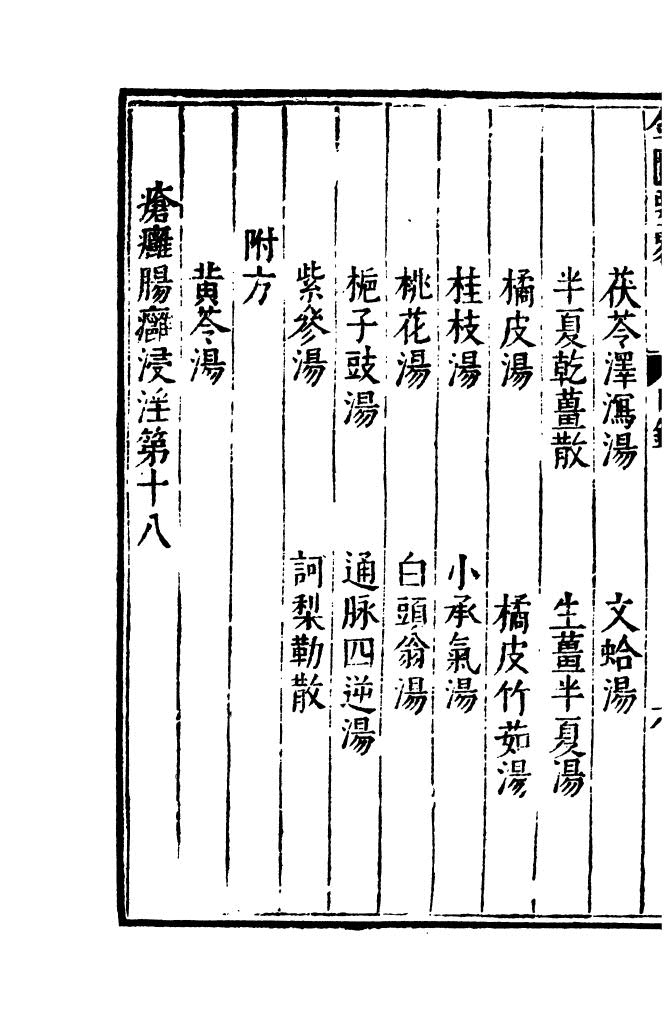 茯苓澤瀉湯　文蛤湯
半夏乾薑散　生薑半夏湯
橘皮湯　橘皮竹茹湯
桂枝湯　小承氣湯
桃花湯　白頭翁湯
梔子豉湯　通脉四逆湯
紫參湯　訶梨勒散
附方
黄芩湯
瘡癰腸癰浸淫第十八